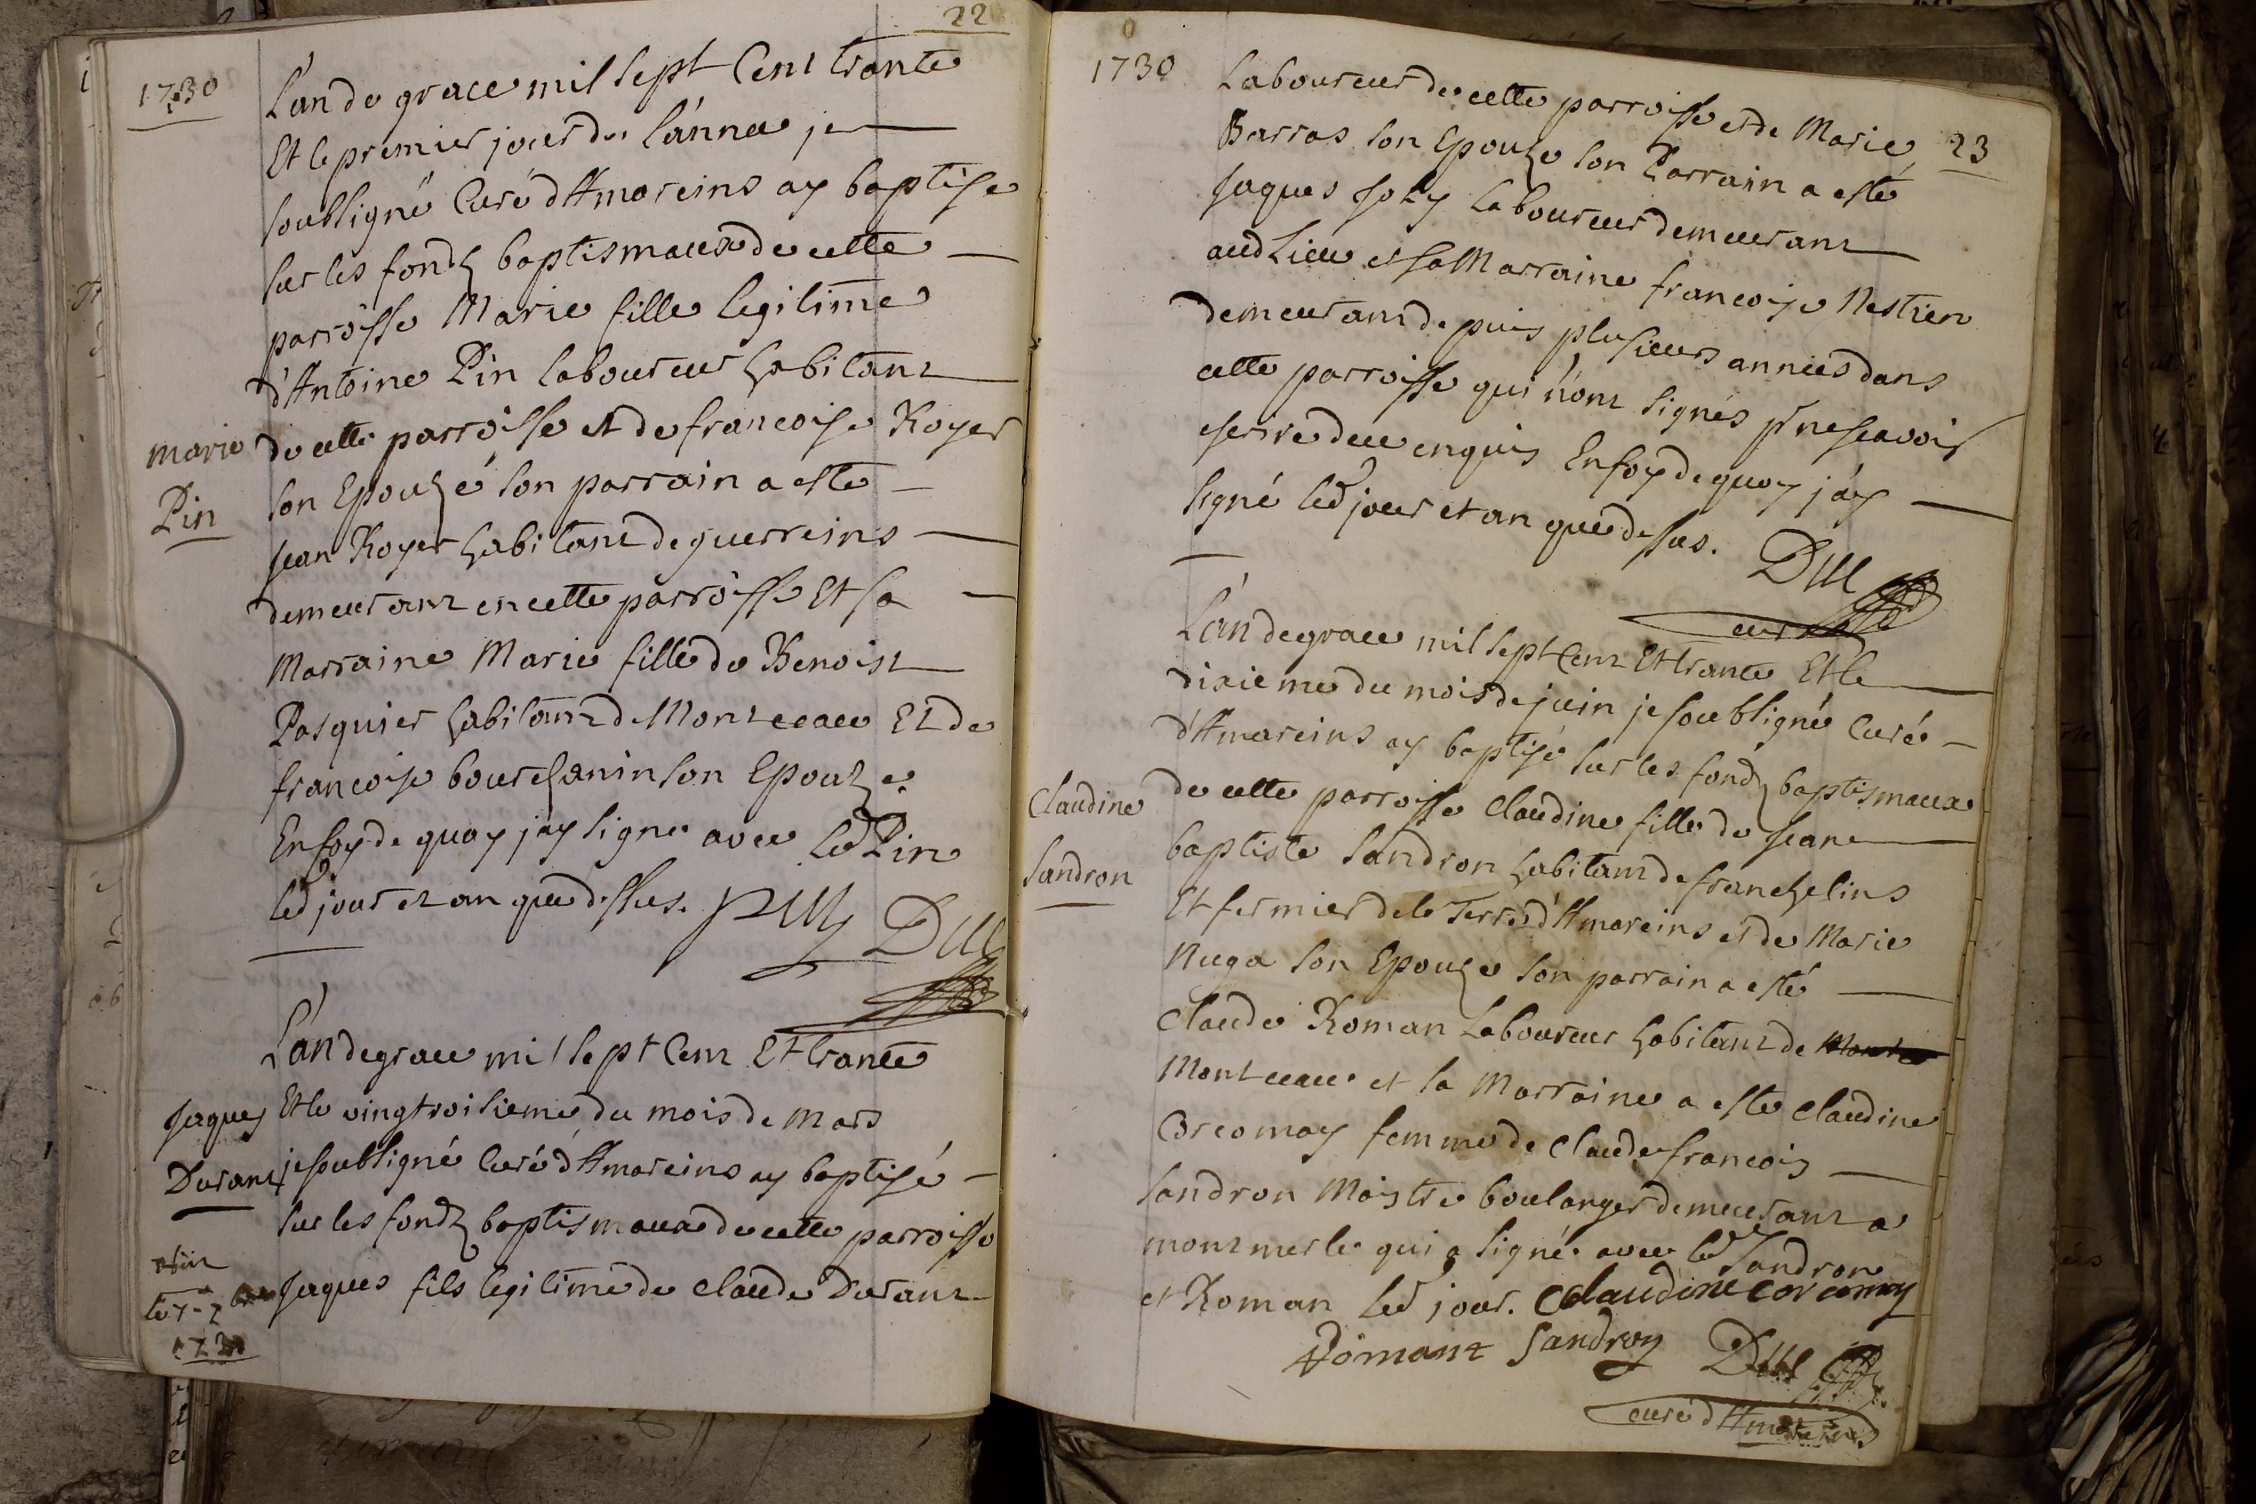 22
1730
L'an de grace mil sept Cent trante
Et le premier jour de l'année je
soubsigné Curé d'Amareins ay baptise
sur les fondz baptismaux de cette
parroisse Marie fille legitime
d'Antoine Pin laboureur habitant
marie
Pin
de cette parroisse et de francoise Royer
son Epouzé son parrain a este
Jean Royer habitant de guerreins
demeurant en cette parroisse Et sa
Marraine Marie fille de Benoist
Pasquier habitant de Montceau Et de
francoise bourchanin son Epouze.
En foy de quoy jay signe avec led Pin
led jour et an que dessus. Pin Duc
L'an de grace mil sept Cent Et trante
Jaques
Durant
Et le vingtroisieme du mois de Mars
je soubsigné Curé d'Amareins ay baptisé
sur les fondz baptismaux de cette parroisse
Jaques fils legitime de Claude Durant
le 7
1730
1730
23
Laboureur de cette parroisse et de Marie
Barras son Epouze son Parrain a esté
Jaques Joly laboureur demeurant
aud Lieu et sa Marraine francoise Nestien
demeurant depuis plusieurs années dans
cette parroisse qui n'ont signés pr ne scavoir
escrire de ce enquis En foy de quoy j'ay
signé led jour et an que dessus. Duc
curé
L'an de grace mil sept Cent Et trante Et le
dixieme du mois de juin je soubsigné Curé
d'Amareins ay baptisé sur les fondz baptismaux
Claudine
Sandron
de cette parroisse Claudine fille de Jean
baptiste Sandron habitant de franchelins
Et fermier de la Terre d'Amareins et de Marie
Nuga son Epouze son parrain a esté
Claude Roman Laboureur habitant de
Montceau et la Marraine a este Claudine
Corcomay femme de Claude francois
Sandron Maistre boulanger demeurant a
montmerle qui a signé avec led Sandron
et Roman led jour. Claudine corcomay
Romant Sandron Duc
curé d'Amareins